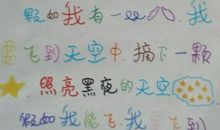 假如我有一双
要飞到天空中.摘下一颗
.照亮黑夜的天空
假如我能飞.我要飞到